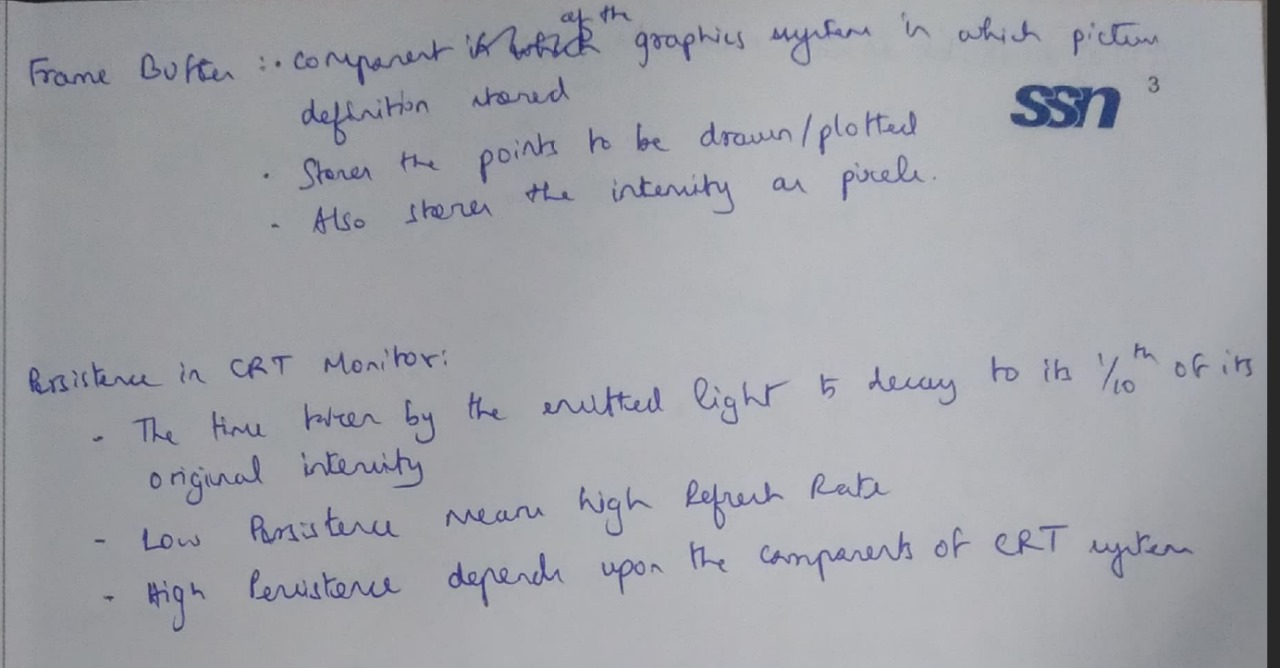 Frame Buffer :. component of the graphics system in which picture
definition stored
ssn 3
. Stores the points to be drawn/plotted
- Also stores the intensity as pixels.
Persistence in CRT Monitor:
- The time taken by the emitted light to decay to its 1/10th of its
original intensity
- Low Persistence means high Refresh Rate
- High Persistence depends upon the components of CRT system